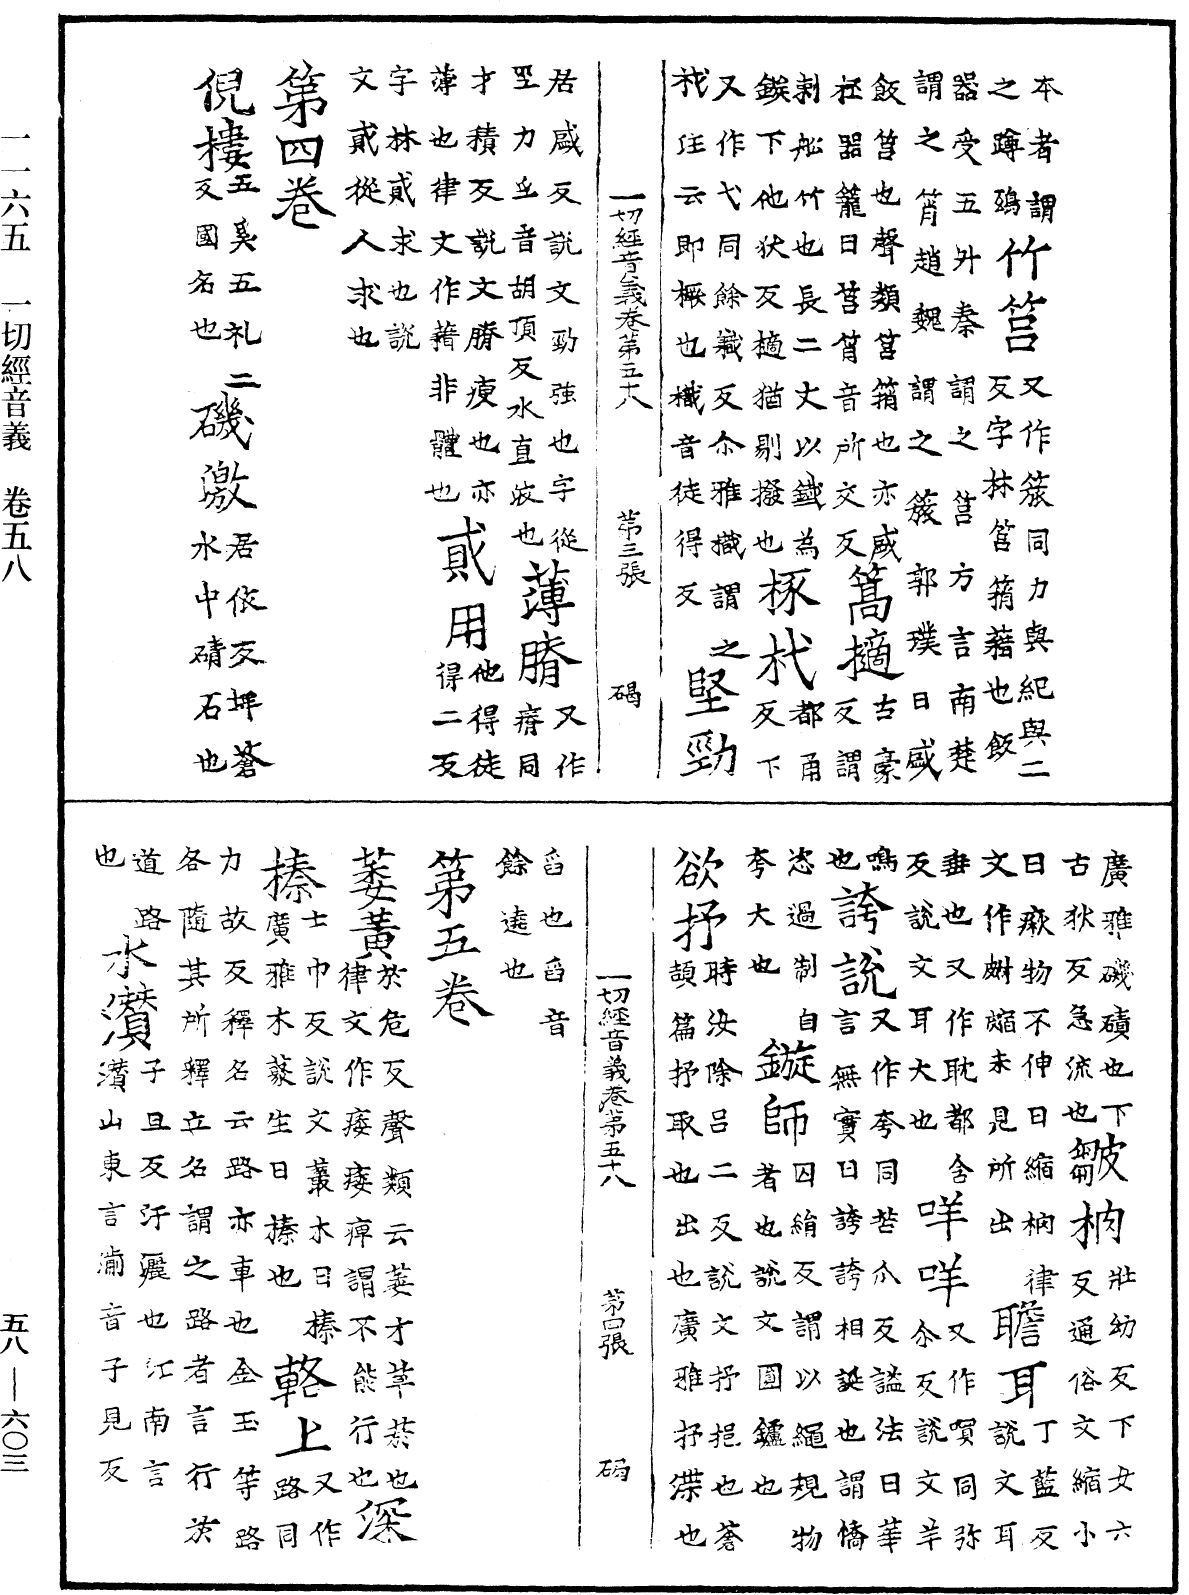 本者謂
之蹲鴟
竹筥
又作䉛同力與紀與二
反字林筥䈰藉也飯
器受五外秦謂之筥方言南楚
謂之筲趙魏謂之䉛郭璞曰盛
飯筥也聲類筥䈰也亦盛
秝器籠曰筥筲音所交反
篙擿
古豪
反謂
刺舩竹也長二丈以鐵為
鏃下他狄反擿猶剔撥也
椓杙
都角
反下
又作弋同餘軄反尒雅樴謂之
杙注云即橛也樴音徒得反
堅勁
一切經音義卷第五十八 第三張 碣
居盛反說文勁強也字從
巠力巠音胡頂反水直波也
薄膌
又作
瘠同
才積反說文膌瘦也亦
薄也律文作藉非體也
貮用
他得徒
得二反
字林貮求也說
文貮從人求也
第四卷
倪樓
五奚五礼二
反國名也
磯激
居依反埤蒼
水中磧石也
廣雅磯磧也下
古狄反急流也
皺枘
壯幼反下女六
反通俗文縮小
曰瘷物不伸曰縮枘律
文作䶊䶎未見所出
聸耳
丁藍反
說文耳
垂也又作耽都含
反說文耳大也
咩咩
又作哶同弥
尒反說文羊
鳴也
誇說
又作夸同苦瓜反謚法曰華
言無實曰誇誇相誕也謂憍
恣過制自
夸大也
鏇師
囚絹反謂以繩規物
者也說文圓鑪也
欲抒
時汝除呂二反說文抒挹也蒼
頡篇抒取也出也廣雅抒渫也
一切經音義卷第五十八 第四張 碣
舀也舀音
餘遶也
第五卷
萎黃
於危反聲類云萎才草菸也
律文作痿痿痺謂不能行也
深
榛
士巾反說文藂木曰榛
廣雅木藂生曰榛也
輅上
又作
路同
力故反釋名云路亦車也金玉等路
各隨其所釋立名謂之路者言行於
道路
也
水灒
子旦反汙灑也江南言
灒山東言湔音子見反
一一六五 一切經音義 卷五八
五八—六〇三